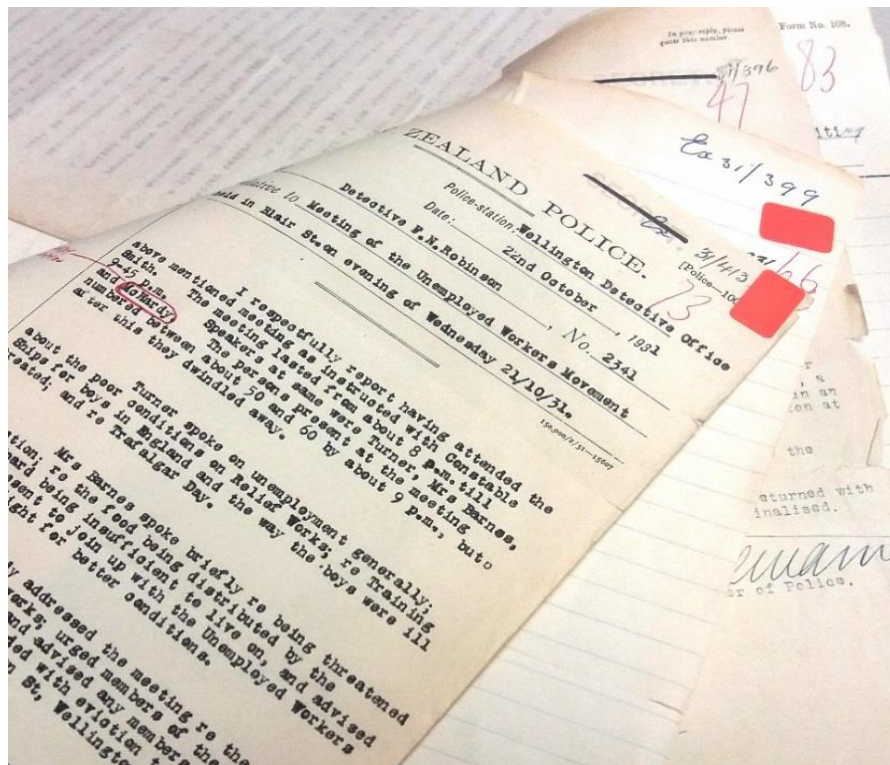 ZEALAND POLICE.
[Police—10
Police-station: Wellington Detective Office
Date: 22nd October, 1931
Detective P.N.Robinson, No. 2341
to Meeting of the Unemployed Workers Movement
held in Blair St.on evening of Wednesday 21/10/31.
150,000/2/31—15607
I respectfully report having attended the
above mentioned meeting as instructed with Constable
Smith. The meeting lasted from about 8 p.m. till
9-45 p.m. Speakers at same were Turner, Mrs Barnes,
and McHardy The persons present at the meeting
numbered between about 50 and 60 by about 9 p.m., but
after this they dwindled away.
Turner spoke on unemployment generally;
about the poor conditions on Relief Works; re Training
Ships for boys in England and the way the boys were ill
reated; and re Trafalgar Day.
Mrs Barnes spoke briefly re being threatened
tion; re the food being distributed by the
ard being insufficient to live on, and advised
esent to join up with the Unemployed Workers
ight for better conditions.
y addressed the meeting re the
orks, urged members of the
and advised any members
ded with eviction
n St, Wellingto
31/413
73
66
Ex 31/399
In your reply, please
quote this number
31/396
47
Form No. 108.
83
iting
, a
in an
on at
the
eturned with
inalised.
er of Police.